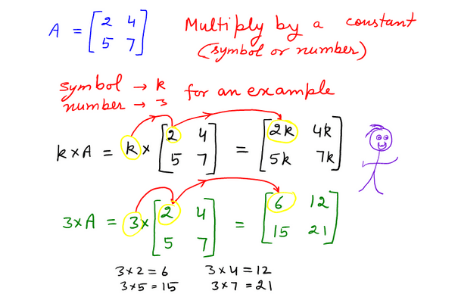 A = [2 4
5 7]
Multiply by a constant
(symbol or number)
symbol → k
number → 3
for an example
k×A = k× [2 4
5 7] = [2k 4k
5k 7k]
3×A = 3× [2 4
5 7] = [6 12
15 21]
3×2=6 3×4=12
3×5=15 3×7=21